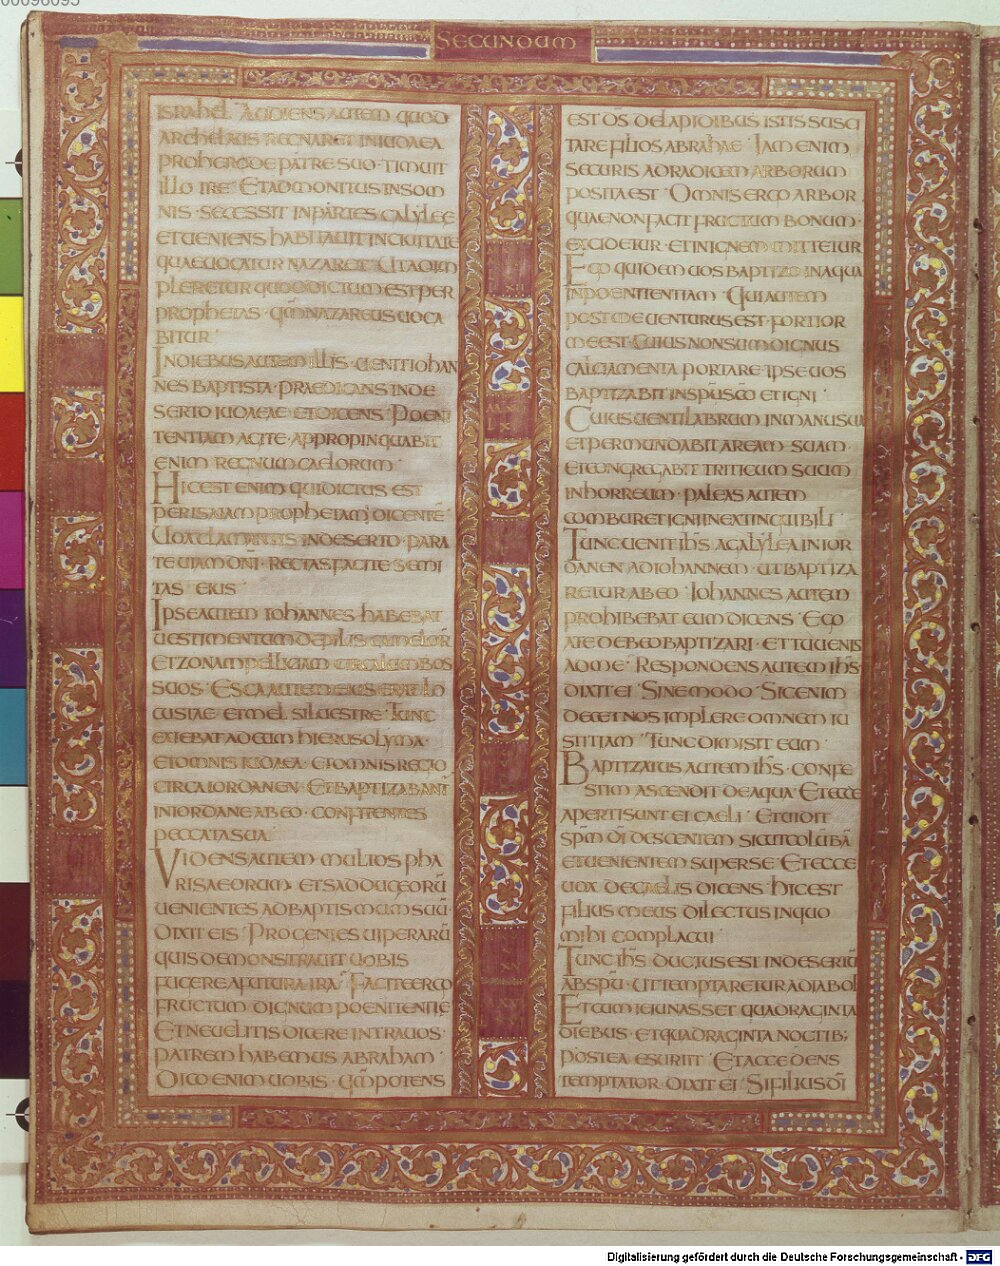 00096095
SECUNDUM
ISRAHEL. AUDIENS AUTEM QUOD
ARCHELAUS REGNARET IN IUDAEA
PRO HERODE PATRE SUO TIMUIT
ILLO IRE ET ADMONITUS IN SOM
NIS SECESSIT IN PARTES GALYLEE
ET UENIENS HABITAUIT IN CIUITATE
QUAE UOCATUR NAZARETH UT ADIM
PLERETUR QUOD DICTUM EST PER
PROPHETAS QM NAZAREUS UOCA
BITUR
IN DIEBUS AUTEM ILLIS UENIT IOHAN
NES BAPTISTA PRAEDICANS IN DE
SERTO IUDAEAE ET DICENS POENI
TENTIAM AGITE APPROPINQUABIT
ENIM REGNUM CAELORUM
HIC EST ENIM QUI DICTUS EST
PER ISAIAM PROPHETAM DICENTE
UOX CLAMANTIS IN DESERTO PARA
TE UIAM DNI RECTAS FACITE SEMI
TAS EIUS
IPSE AUTEM IOHANNES HABEBAT
UESTIMENTUM DE PILIS CAMELOR
ET ZONAM PELLICIAM CIRCA LUMBOS
SUOS ESCA AUTEM EIUS ERAT LO
CUSTAE ET MEL SILUESTRE TUNC
EXIEBAT AD EUM HIERUSOLYMA
ET OMNIS IUDAEA ET OMNIS REGIO
CIRCA IORDANEN ET BAPTIZABANT
IN IORDANE AB EO CONFITENTES
PECCATA SUA
VIDENS AUTEM MULTOS PHA
RISAEORUM ET SADDUCEORU
UENIENTES AD BAPTISMUM SUU
DIXIT EIS PROGENIES UIPERARU
QUIS DEMONSTRAUIT UOBIS
FUGERE A FUTURA IRA FACITE ERGO
FRUCTUM DIGNUM POENITENTIE
ET NE UELITIS DICERE INTRA UOS
PATREM HABEMUS ABRAHAM
DICO ENIM UOBIS QM POTENS
EST DS DE LAPIDIBUS ISTIS SUSCI
TARE FILIOS ABRAHAE IAM ENIM
SECURIS AD RADICEM ARBORUM
POSITA EST OMNIS ERGO ARBOR
QUAE NON FACIT FRUCTUM BONUM
EXCIDETUR ET IN IGNEM MITTETUR
EGO QUIDEM UOS BAPTIZO IN AQUA
IN POENITENTIAM QUI AUTEM
POST ME UENTURUS EST FORTIOR
ME EST CUIUS NON SUM DIGNUS
CALCIAMENTA PORTARE IPSE UOS
BAPTIZABIT IN SPU SCO ET IGNI
CUIUS UENTILABRUM IN MANU SUA
ET PERMUNDABIT AREAM SUAM
ET CONGREGABIT TRITICUM SUUM
IN HORREUM PALEAS AUTEM
COMBURET IGNI INEXTINGUIBILI
TUNC UENIT IHS A GALYLEA IN IOR
DANEN AD IOHANNEM UT BAPTIZA
RETUR AB EO IOHANNES AUTEM
PROHIBEBAT EUM DICENS EGO
A TE DEBEO BAPTIZARI ET TU UENIS
AD ME RESPONDENS AUTEM IHS
DIXIT EI SINE MODO SIC ENIM
DECET NOS IMPLERE OMNEM IU
STITIAM TUNC DIMISIT EUM
BAPTIZATUS AUTEM IHS CONFE
STIM ASCENDIT DE AQUA ET ECCE
APERTI SUNT EI CAELI ET UIDIT
SPM DI DESCENTEM SICUT COLUBA
ET UENIENTEM SUPER SE ET ECCE
UOX DE CAELIS DICENS HIC EST
FILIUS MEUS DILECTUS IN QUO
MIHI COMPLACUI
TUNC IHS DUCTUS EST IN DESERTU
AB SPU UT TEMPTARETUR A DIABOL
ET CUM IEIUNASSET QUADRAGINTA
DIEBUS ET QUADRAGINTA NOCTIB;
POSTEA ESURIIT ET ACCEDENS
TEMPTATOR DIXIT EI SI FILIUS DI
Digitalisierung gefördert durch die Deutsche Forschungsgemeinschaft - DFG